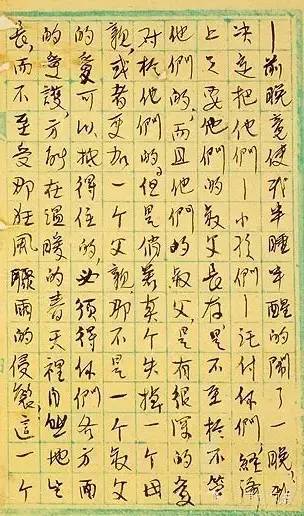 —前晚竟使我半睡半醒的鬧了一晚,我
决定把他們—小孩們—託付你們,經濟
上只要他們的叔父長存,是不至於不管
他們的,而且他們的叔父,是有很深的愛
对於他們的,但是倘若真个失掉一个母
親,或者更加一个父親,那不是一个叔父
的愛可以抵得住的,必須得你們各方面
的愛護,方能在溫暖的春天裡自然地生
長,而不至受那狂風驟雨的侵襲,這一个